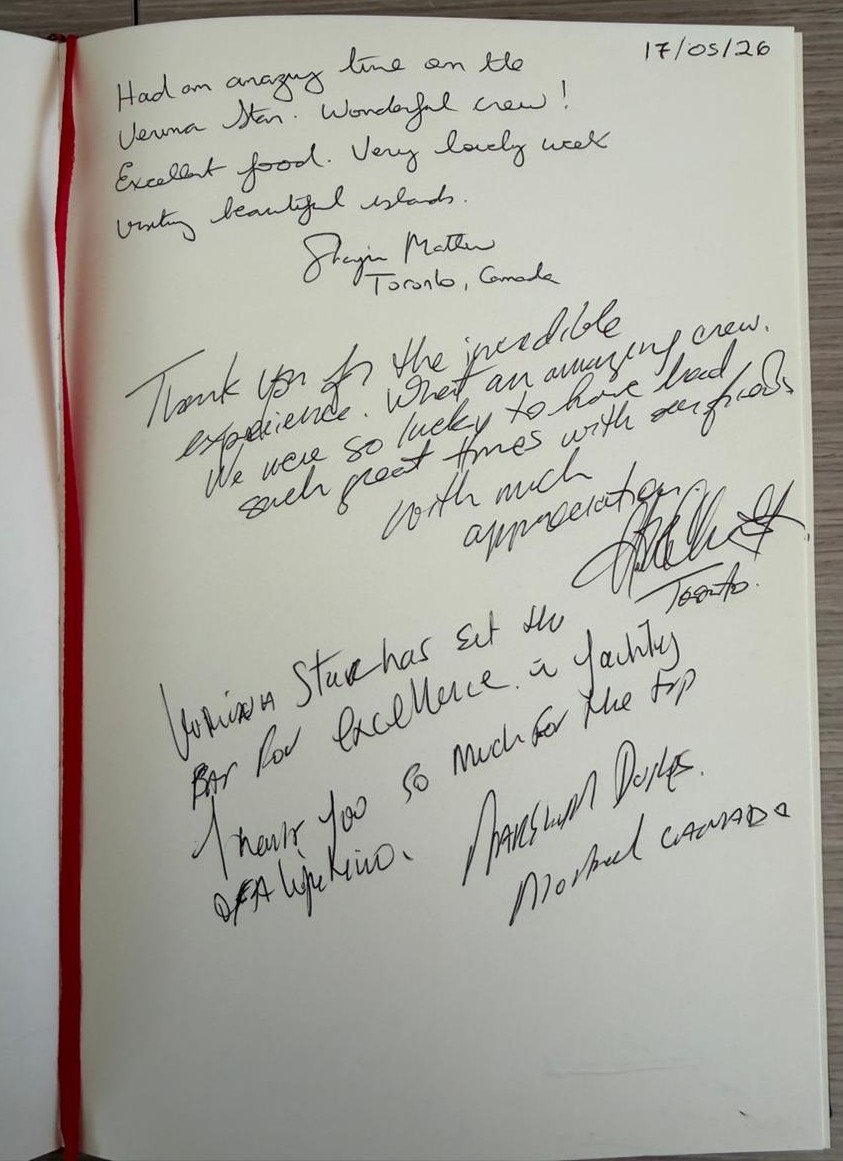 17/05/26
Had an amazing time on the
Verona Star. Wonderful crew!
Excellent food. Very lovely week
visiting beautiful islands.
Toronto, Canada
Thank you for the incredible
experience. What an amazing crew.
We were so lucky to have had
such great times with our friends
with much
appreciation.
Toronto.
Star has set the
Bar for excellence in Yachting
Thank you so much for the trip
OF A lifetime.
MARSHALL
Montreal CANADA